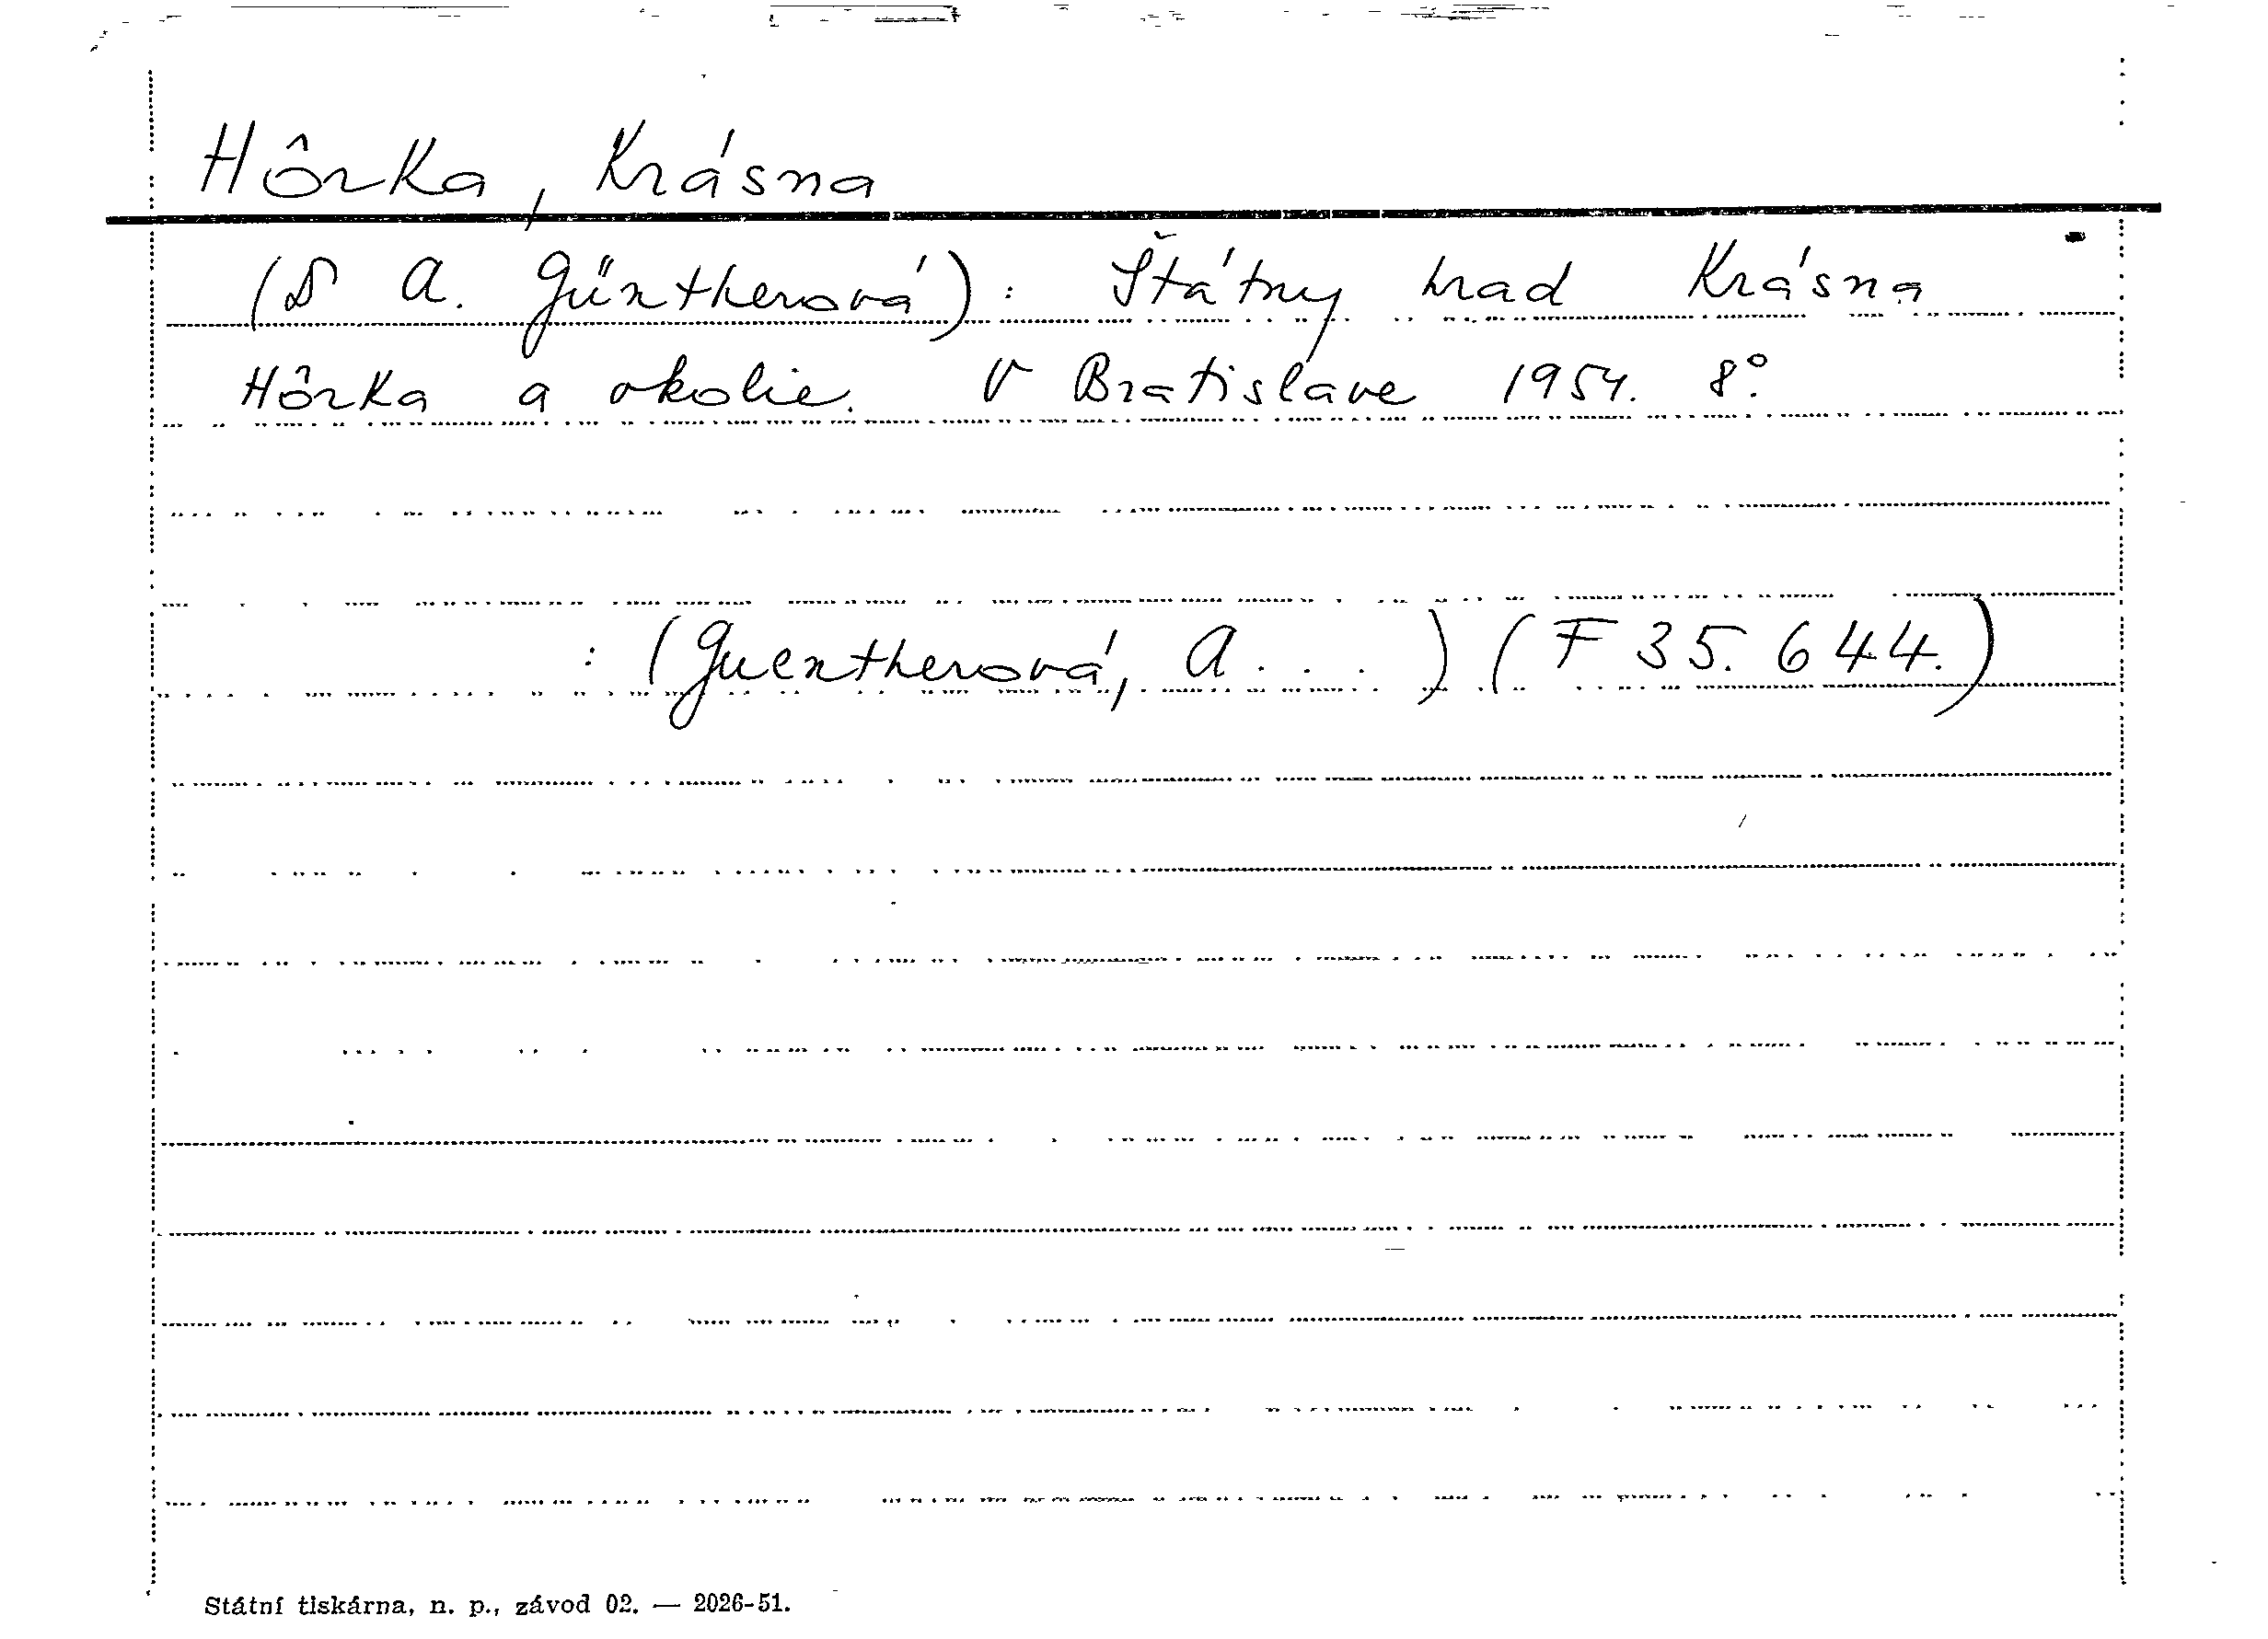 Hôrka, Krásna
( A. Güntherová): Štátny hrad Krásna
Hôrka a okolie. V Bratislave 1954. 8°.
: (Guentherová, A . . . ) (F 35.644.)
Státní tiskárna, n. p., závod 02. — 2026-51.